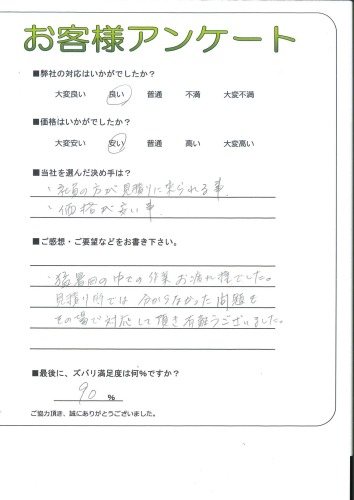 お客様アンケート
■弊社の対応はいかがでしたか？
大変良い 良い 普通 不満 大変不満
■価格はいかがでしたか？
大変安い 安い 普通 高い 大変高い
■当社を選んだ決め手は？
・社員の方が見積りに来られる事
・価格が安い事
■ご感想・ご要望などをお書き下さい。
・猛暑日の中での作業お疲れ様でした。
見積り時では分からなかった問題を
その場で対応して頂き有難うございました。
■最後に、ズバリ満足度は何%ですか？
90 %
ご協力頂き、誠にありがとうございました。